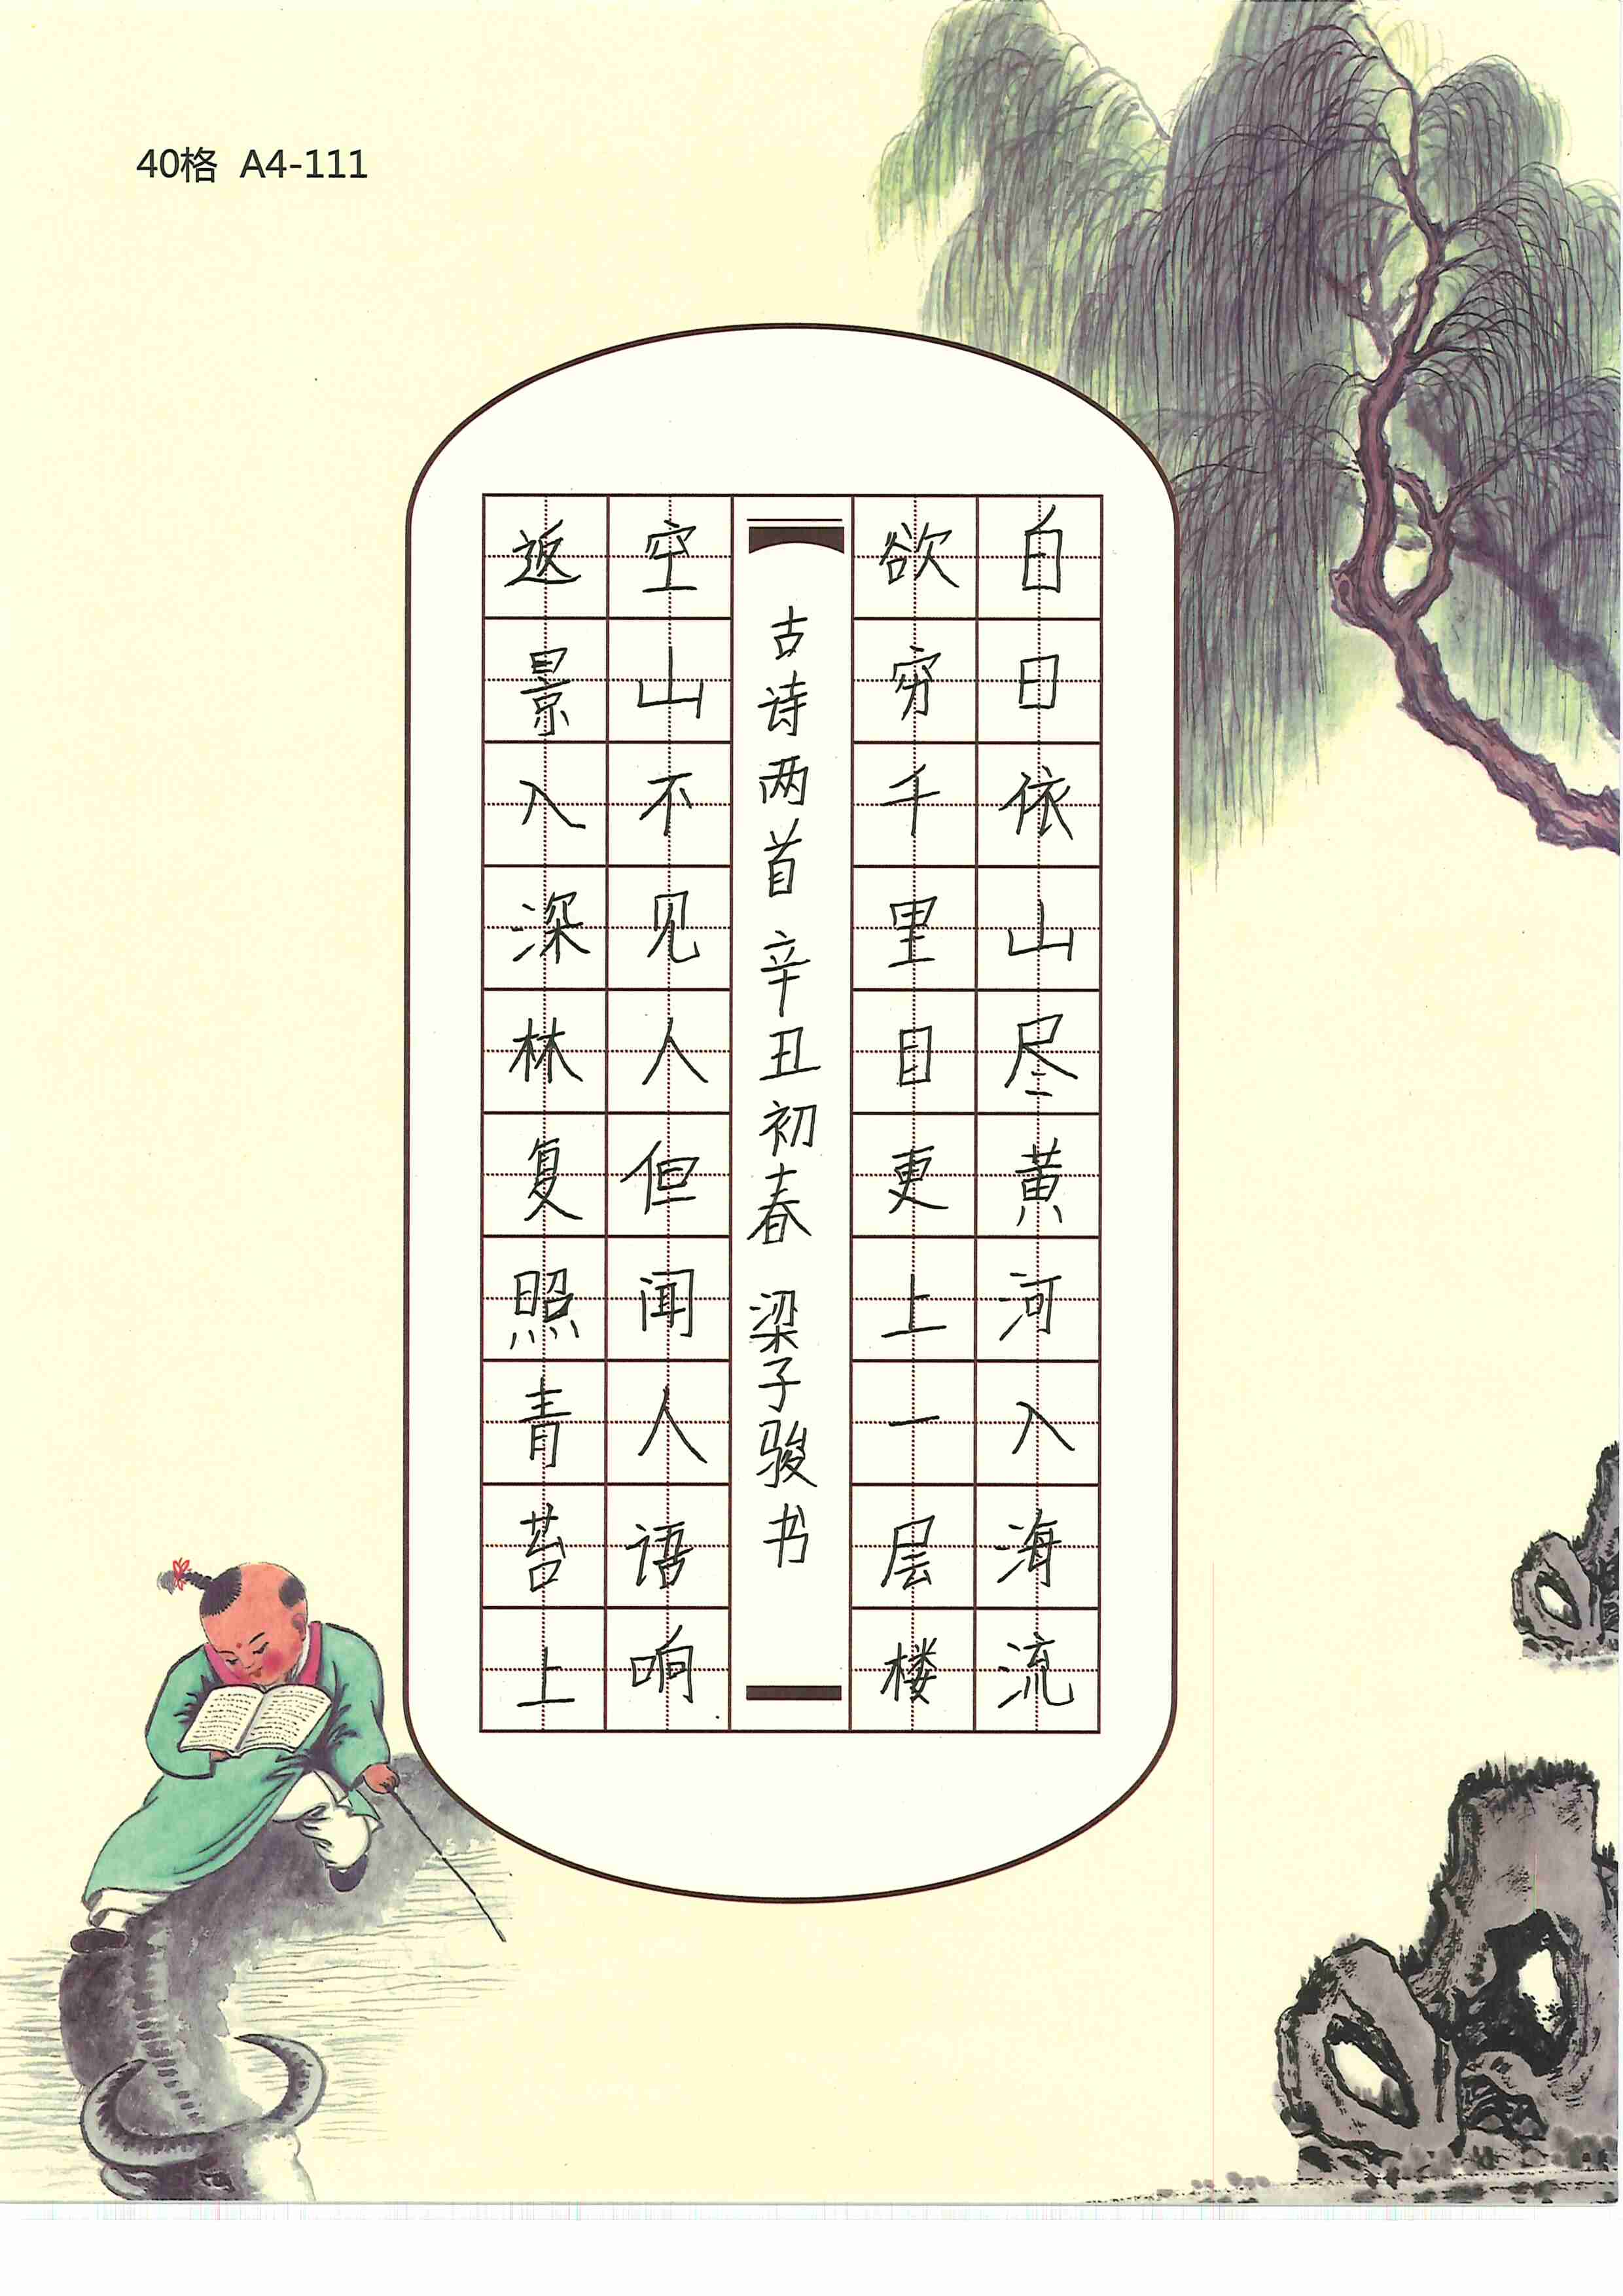 40格 A4-111
白日依山尽黄河入海流
欲穷千里目更上一层楼
古诗两首 辛丑初春 梁子骏书
空山不见人但闻人语响
返景入深林复照青苔上